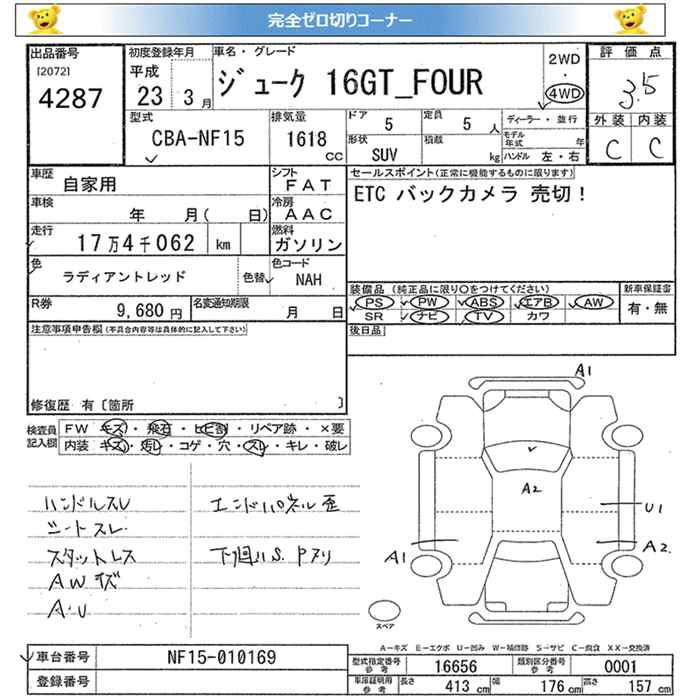 完全ゼロ切りコーナー
出品番号 初度登録年月 車名・グレード 2WD 評価点
[2072] 平成 ・
4287 23 年 3 月 ジューク 16GT_FOUR 4WD 3.5
型式 排気量 ドア 5 定員 5 人 ディーラー・並行 外装 内装
CBA-NF15 1618 CC 形状 SUV 積載 kg モデル年式 年 C C
ハンドル 左・右
車歴 自家用 シフト FAT セールスポイント(正常に機能するものに限ります)
車検 年 月( 日) 冷房 AAC ETC バックカメラ 売切!
走行 17万4千062 km 燃料 ガソリン
色 ラディアントレッド 色替 色コード NAH
装備品 (純正品に限り○をつけてください) 新車保証書
R券 9,680円 名変通知期限 月 日 PS PW ABS エアB AW 有・無
SR ナビ TV カワ
注意事項申告欄(不具合内容等は具体的に記入して下さい) 後日品
修復歴 有〔箇所 〕
検査員記入欄 FW キズ・飛石・ヒビ割・リペア跡・×要
内装 キズ・汚レ・コゲ・穴・スレ・キレ・破レ
A1
A2
U1
A1
A2
ハンドルスレ エンドパネル歪
シートスレ
スタットレス 下廻りS. Pヌリ
AWキズ
A・U
スペア
A-キズ E-エクボ U-凹み W-補修跡 S-サビ C-腐食 XX-交換済
車台番号 NF15-010169 型式指定番号 参考 16656 類別区分番号 参考 0001
登録番号 車庫証明用 参考 長さ 413 cm 幅 176 cm 高さ 157 cm